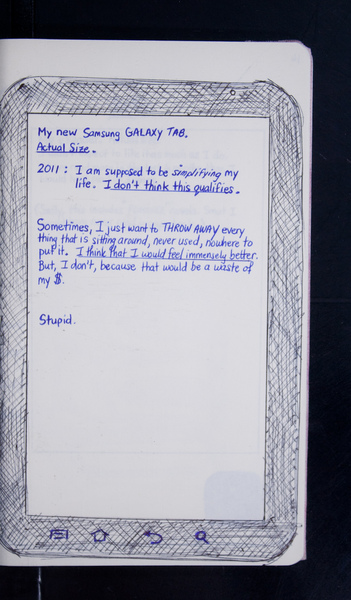 My new Samsung GALAXY TAB.
Actual Size.
2011 : I am supposed to be simplifying my
life. I don't think this qualifies.
Sometimes, I just want to THROW AWAY every
thing that is sitting around, never used, nowhere to
put it. I think that I would feel immensely better.
But, I don't, because that would be a waste of
my $.
Stupid.